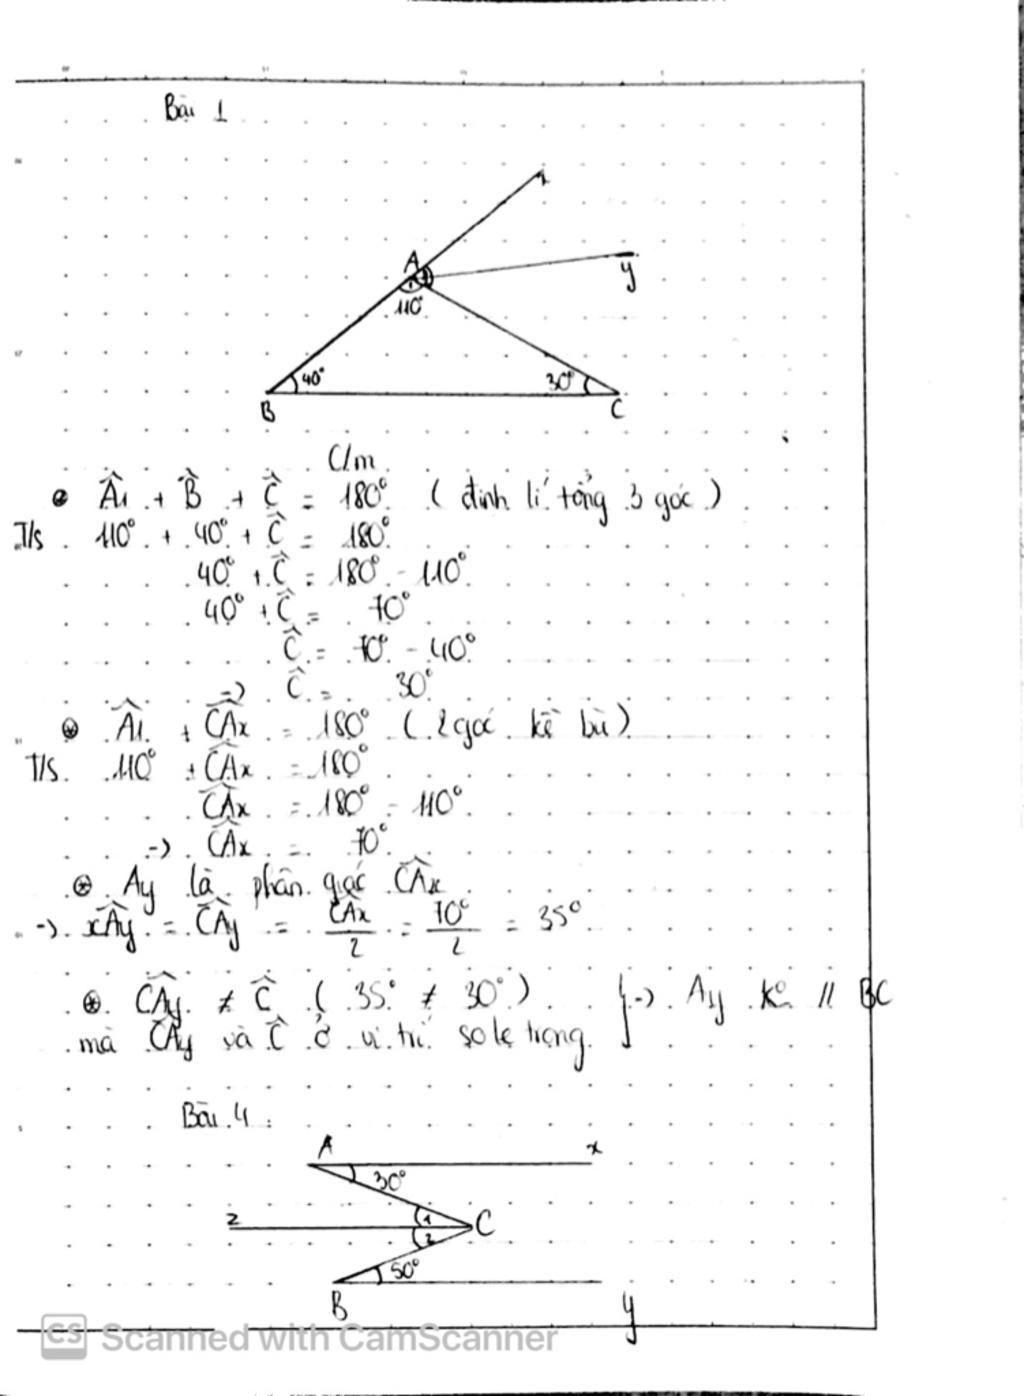 Bài 1
x
A
y
110°
40°
30°
B
C
C/m
Â₁ + B̂ + Ĉ = 180° (định lí tổng 3 góc)
T/s 110° + 40° + Ĉ = 180°
40° + Ĉ = 180° - 110°
40° + Ĉ = 70°
Ĉ = 70° - 40°
=> Ĉ = 30°
⊛ Â₁ + CÂx = 180° (2 góc kề bù)
T/S 110° + CÂx = 180°
CÂx = 180° - 110°
-> CÂx = 70°
⊛ Ay là phân giác CÂx
-> xÂy = CÂy = CÂx/2 = 70°/2 = 35°
⊛ CÂy ≠ Ĉ (35° ≠ 30°) } -> Ay k° // BC
mà CÂy và Ĉ ở vị trí so le trong
Bài 4:
A
x
30°
z
1
C
2
50°
B
y
CS Scanned with CamScanner